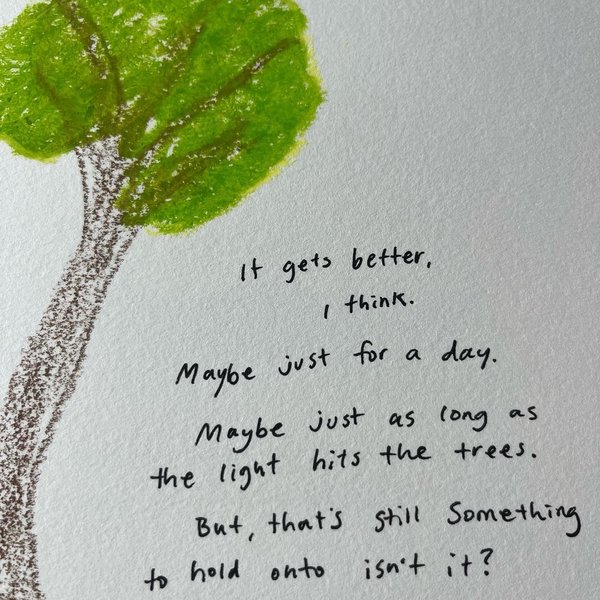 It gets better,
I think.
Maybe just for a day.
Maybe just as long as
the light hits the trees.
But, that's still something
to hold onto isn't it?